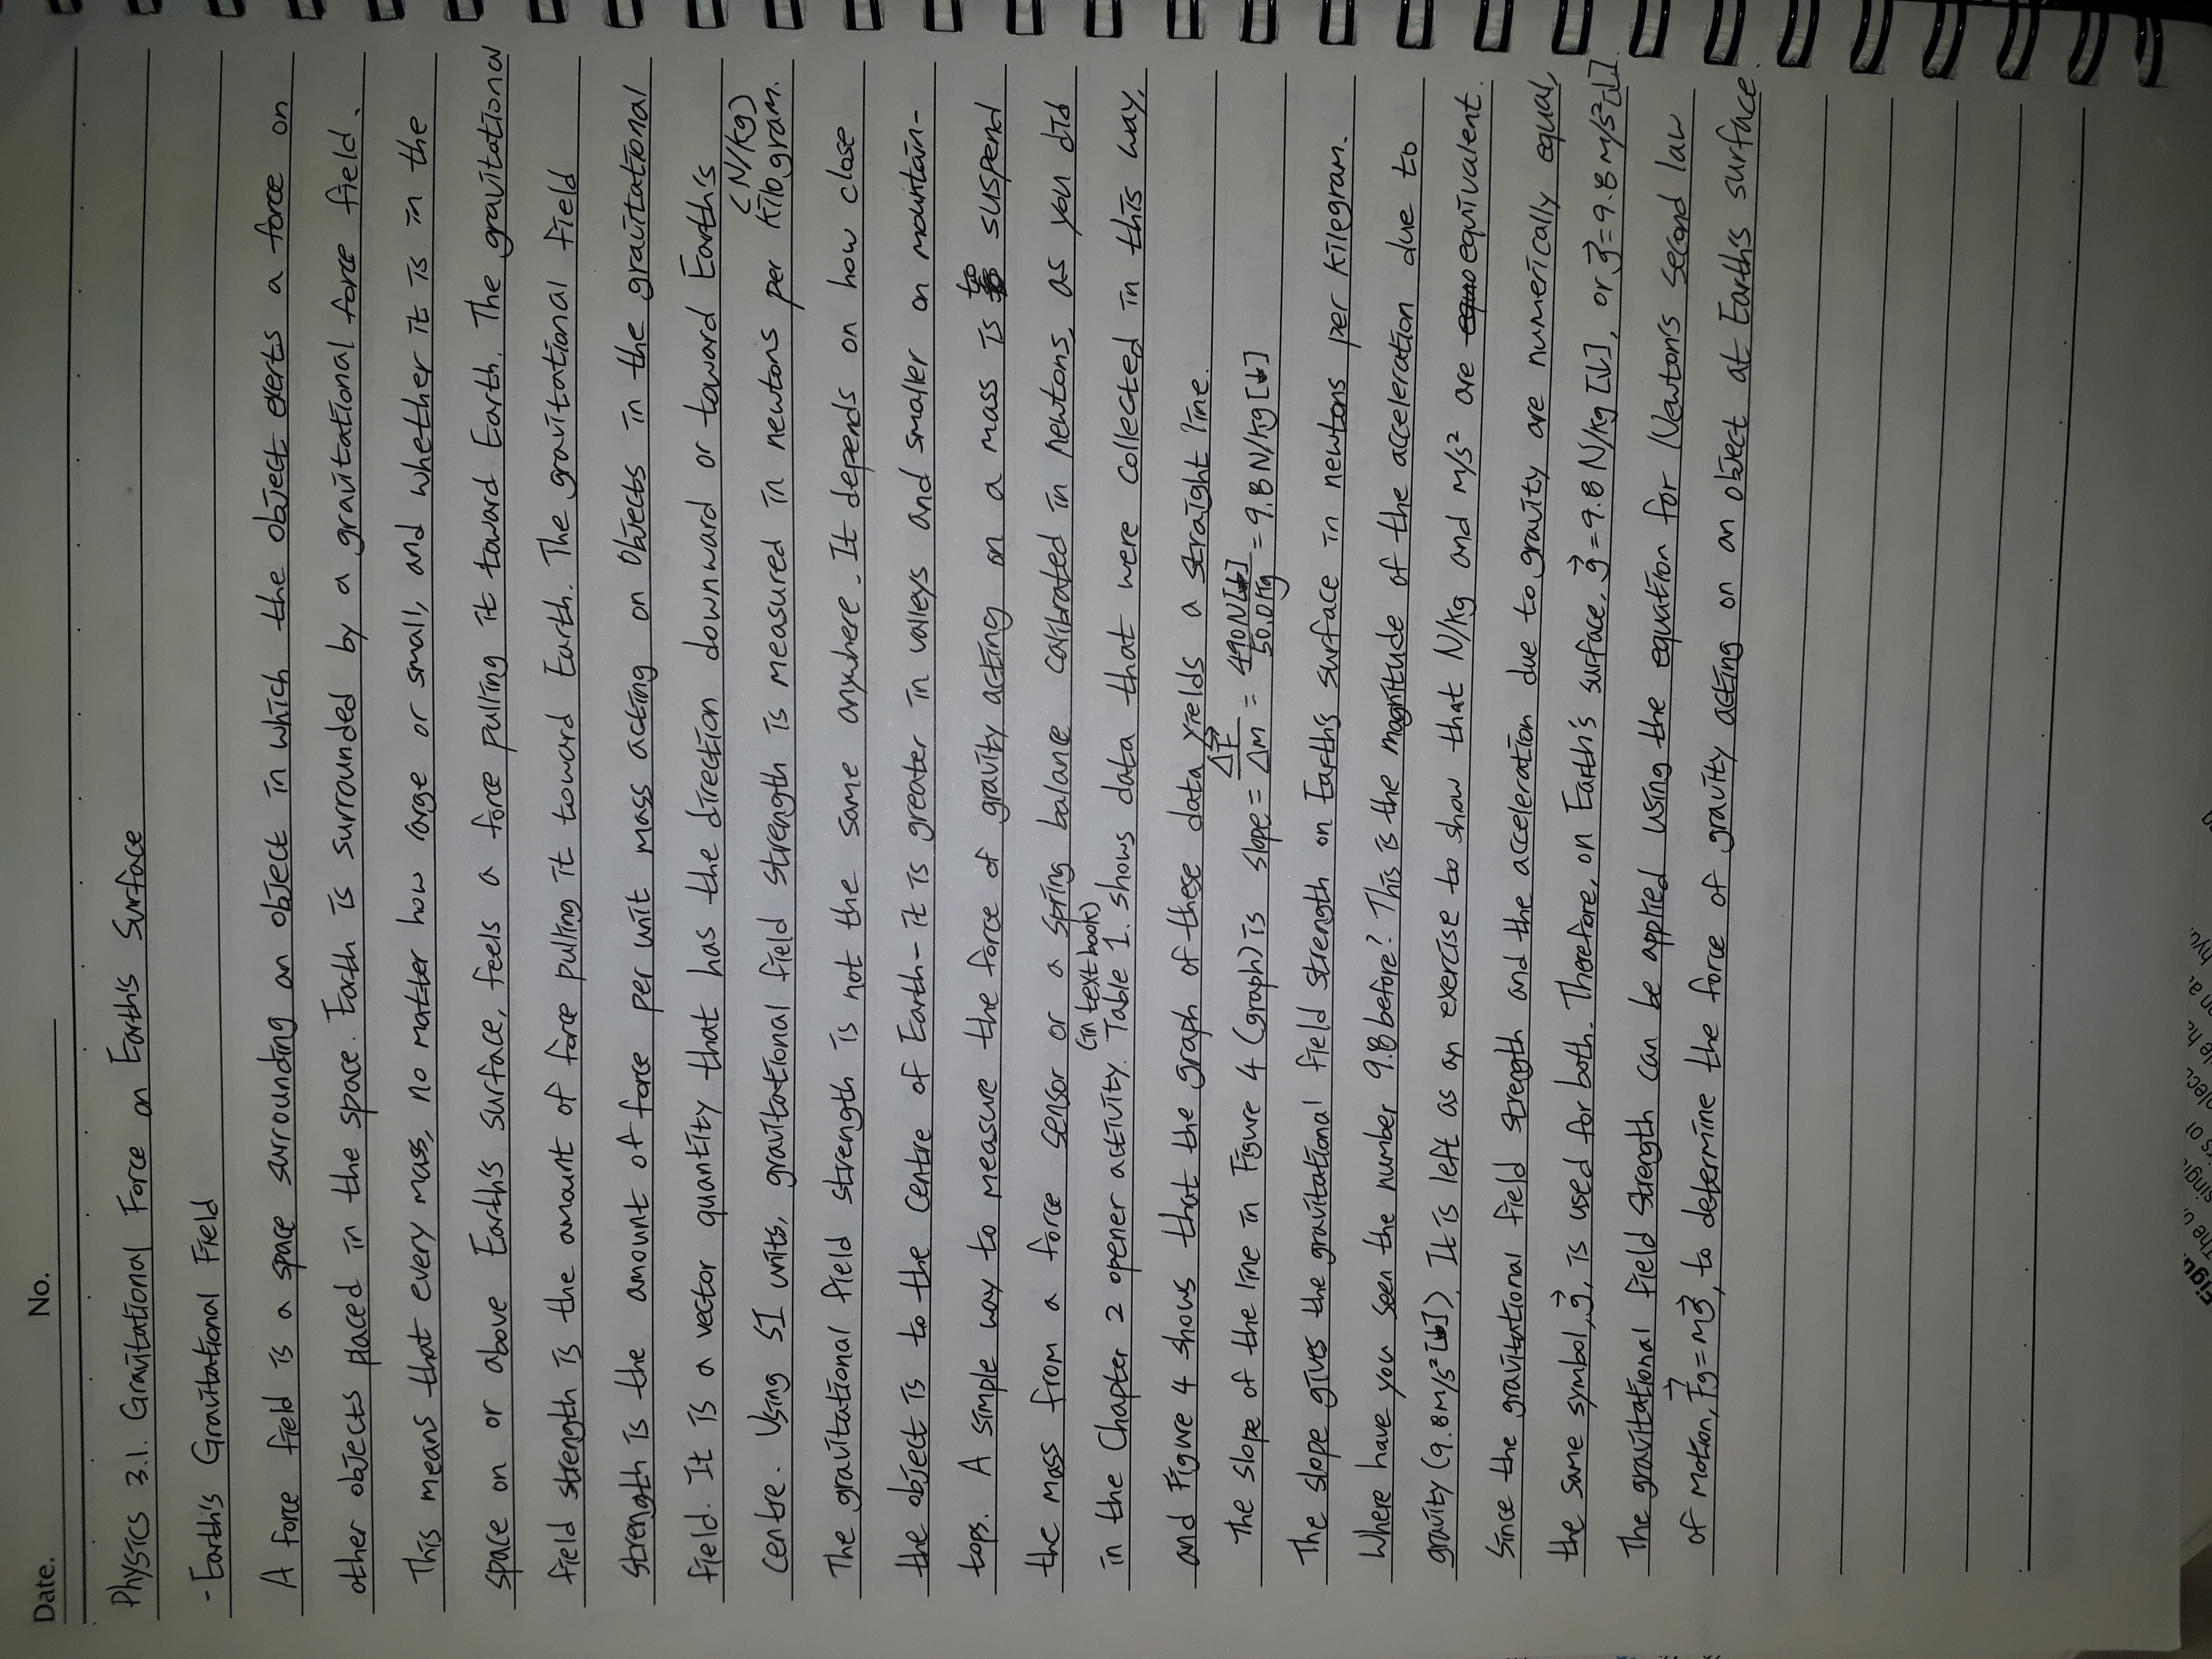 Date. No.
Physics 3.1. Gravitational Force on Earth's Surface
- Earth's Gravitational Field
A force field is a space surrounding an object in which the object exerts a force on
other objects placed in the space. Earth is surrounded by a gravitational force field.
This means that every mass, no matter how large or small, and whether it is in the
space on or above Earth's surface, feels a force pulling it toward Earth. The gravitational
field strength is the amount of force pulling it toward Earth. The gravitational field
strength is the amount of force per unit mass acting on objects in the gravitational
field. It is a vector quantity that has the direction downward or toward Earth's
centre. Using SI units, gravitational field strength is measured in newtons per kilogram. (N/kg)
The gravitational field strength is not the same anywhere. It depends on how close
the object is to the centre of Earth - it is greater in valleys and smaller on mountain-
tops. A simple way to measure the force of gravity acting on a mass is to suspend
the mass from a force sensor or a spring balance calibrated in newtons, as you did
in the Chapter 2 opener activity. Table 1. (in textbook) shows data that were collected in this way,
and Figure 4 shows that the graph of these data yields a straight line.
The slope of the line in Figure 4 (graph) is slope = ΔF⃗/Δm = 490N[↓]/50.0kg = 9.8N/kg[↓]
The slope gives the gravitational field strength on Earth's surface in newtons per kilegram.
Where have you seen the number 9.8 before? This is the magnitude of the acceleration due to
gravity (9.8m/s²[↓]). It is left as an exercise to show that N/kg and m/s² are equivalent.
Since the gravitational field strength and the acceleration due to gravity are numerically equal,
the same symbol, g⃗, is used for both. Therefore, on Earth's surface, g⃗=9.8 N/kg [↓], or g⃗=9.8 m/s²[↓].
The gravitational field strength can be applied using the equation for Newton's second law
of motion, F⃗g = mg⃗, to determine the force of gravity acting on an object at Earth's surface.